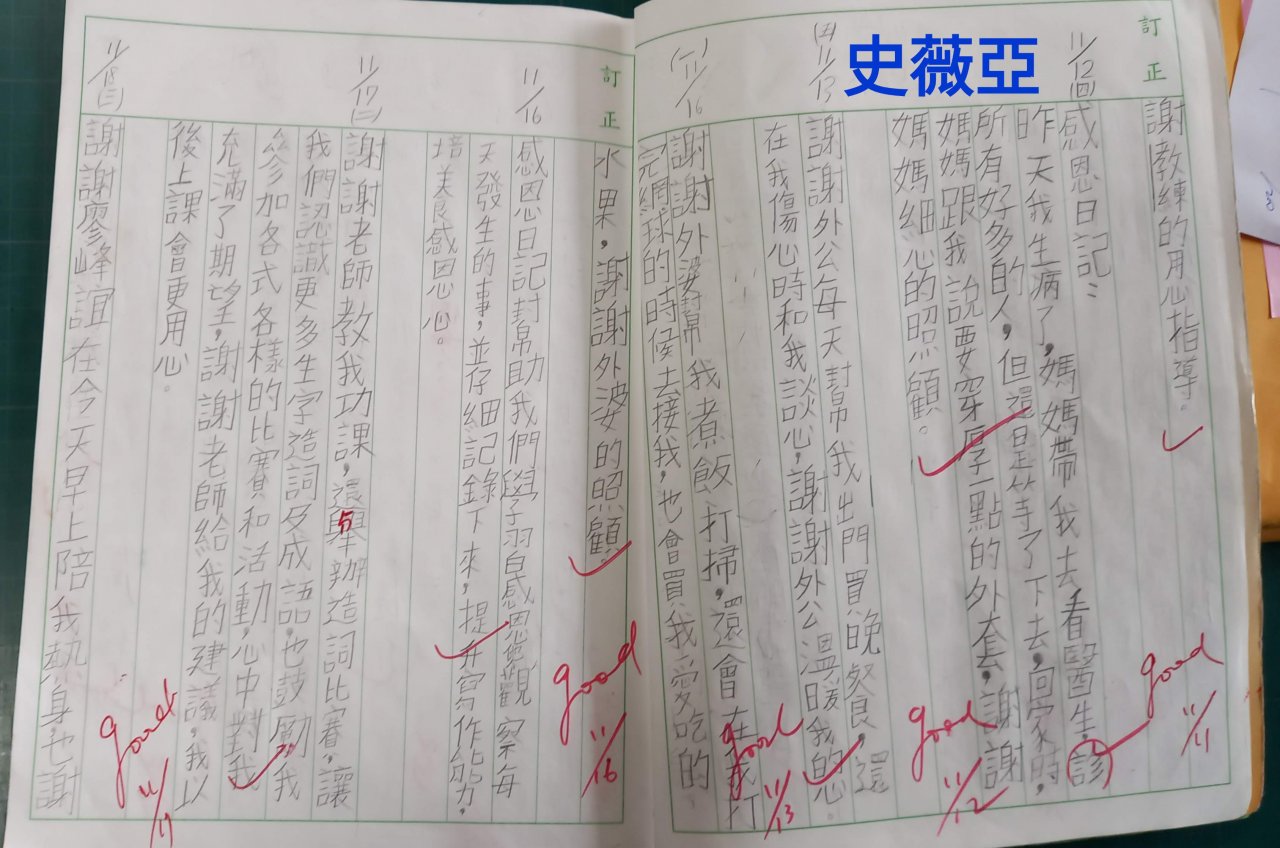 訂正
史薇亞
謝教練的用心指導。
11/12(四)
感恩日記：
昨天我生病了，媽媽帶我去看醫生，診
所有好多的人，但還是等了下去，回家時，
媽媽跟我說要穿厚一點的外套，謝謝
媽媽細心的照顧。
(五)11/13
謝謝外公每天幫我出門買晚餐，還
在我傷心時和我談心，謝謝外公溫暖我的心
(一)11/16
謝謝外婆幫我煮飯、打掃，還會在我打
完網球的時候去接我，也會買我愛吃的
good 11/11
good 11/12
good 11/13
訂正
水果，謝謝外婆的照顧
11/16
感恩日記幫助我們學習感恩觀察每
天發生的事，並仔細記錄下來，提升寫作能力，
培養感恩心。
11/17(二)
謝謝老師教我功課，還舉辦造詞比賽，讓
我們認識更多生字造詞及成語，也鼓勵我
參加各式各樣的比賽和活動，心中對我
充滿了期望，謝謝老師給我的建議，我以
後上課會更用心。
11/18(三)
謝謝廖峰誼在今天早上陪我熱身，也謝
good 11/16
good 11/17